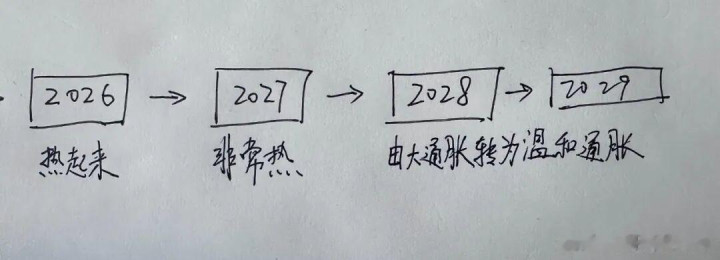 2026 → 2027 → 2028 → 2029
热起来 非常热 由大通胀转为温和通胀